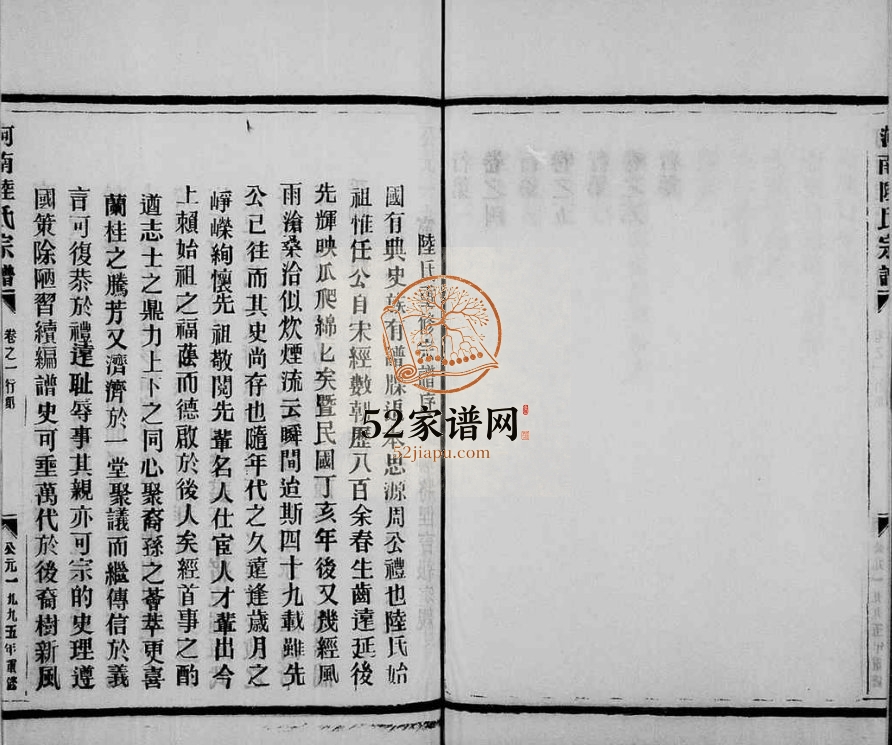 陸氏重修宗譜序
國有典史族有譜牒返本思源周公禮也陸氏始
祖惟任公自宋經數朝歷八百余春生齒達延後
先輝映瓜爬綿匕矣暨民國丁亥年後又幾經風
雨滄桑洽似炊煙流云瞬間迨斯四十九載難先
公已往而其史尚存也隨年代之久遠逢歲月之
崢嶸絢懷先祖敬閱先輩名人仕宦人才輩出今
上賴始祖之福蔭而德啟於後人矣經首事之酌
遒志士之鼎力上下之同心聚裔孫之薈萃更喜
蘭桂之騰芳又濟濟於一堂聚議而繼傳信於義
言可復恭於禮達耻辱事其親亦可宗的史理遵
國策除陋習續編譜史可垂萬代於後裔樹新風
河南陸氏宗譜
卷之一行節
公元一九九五年重修
河南陸氏宗譜
52家谱网
52jiapu.com